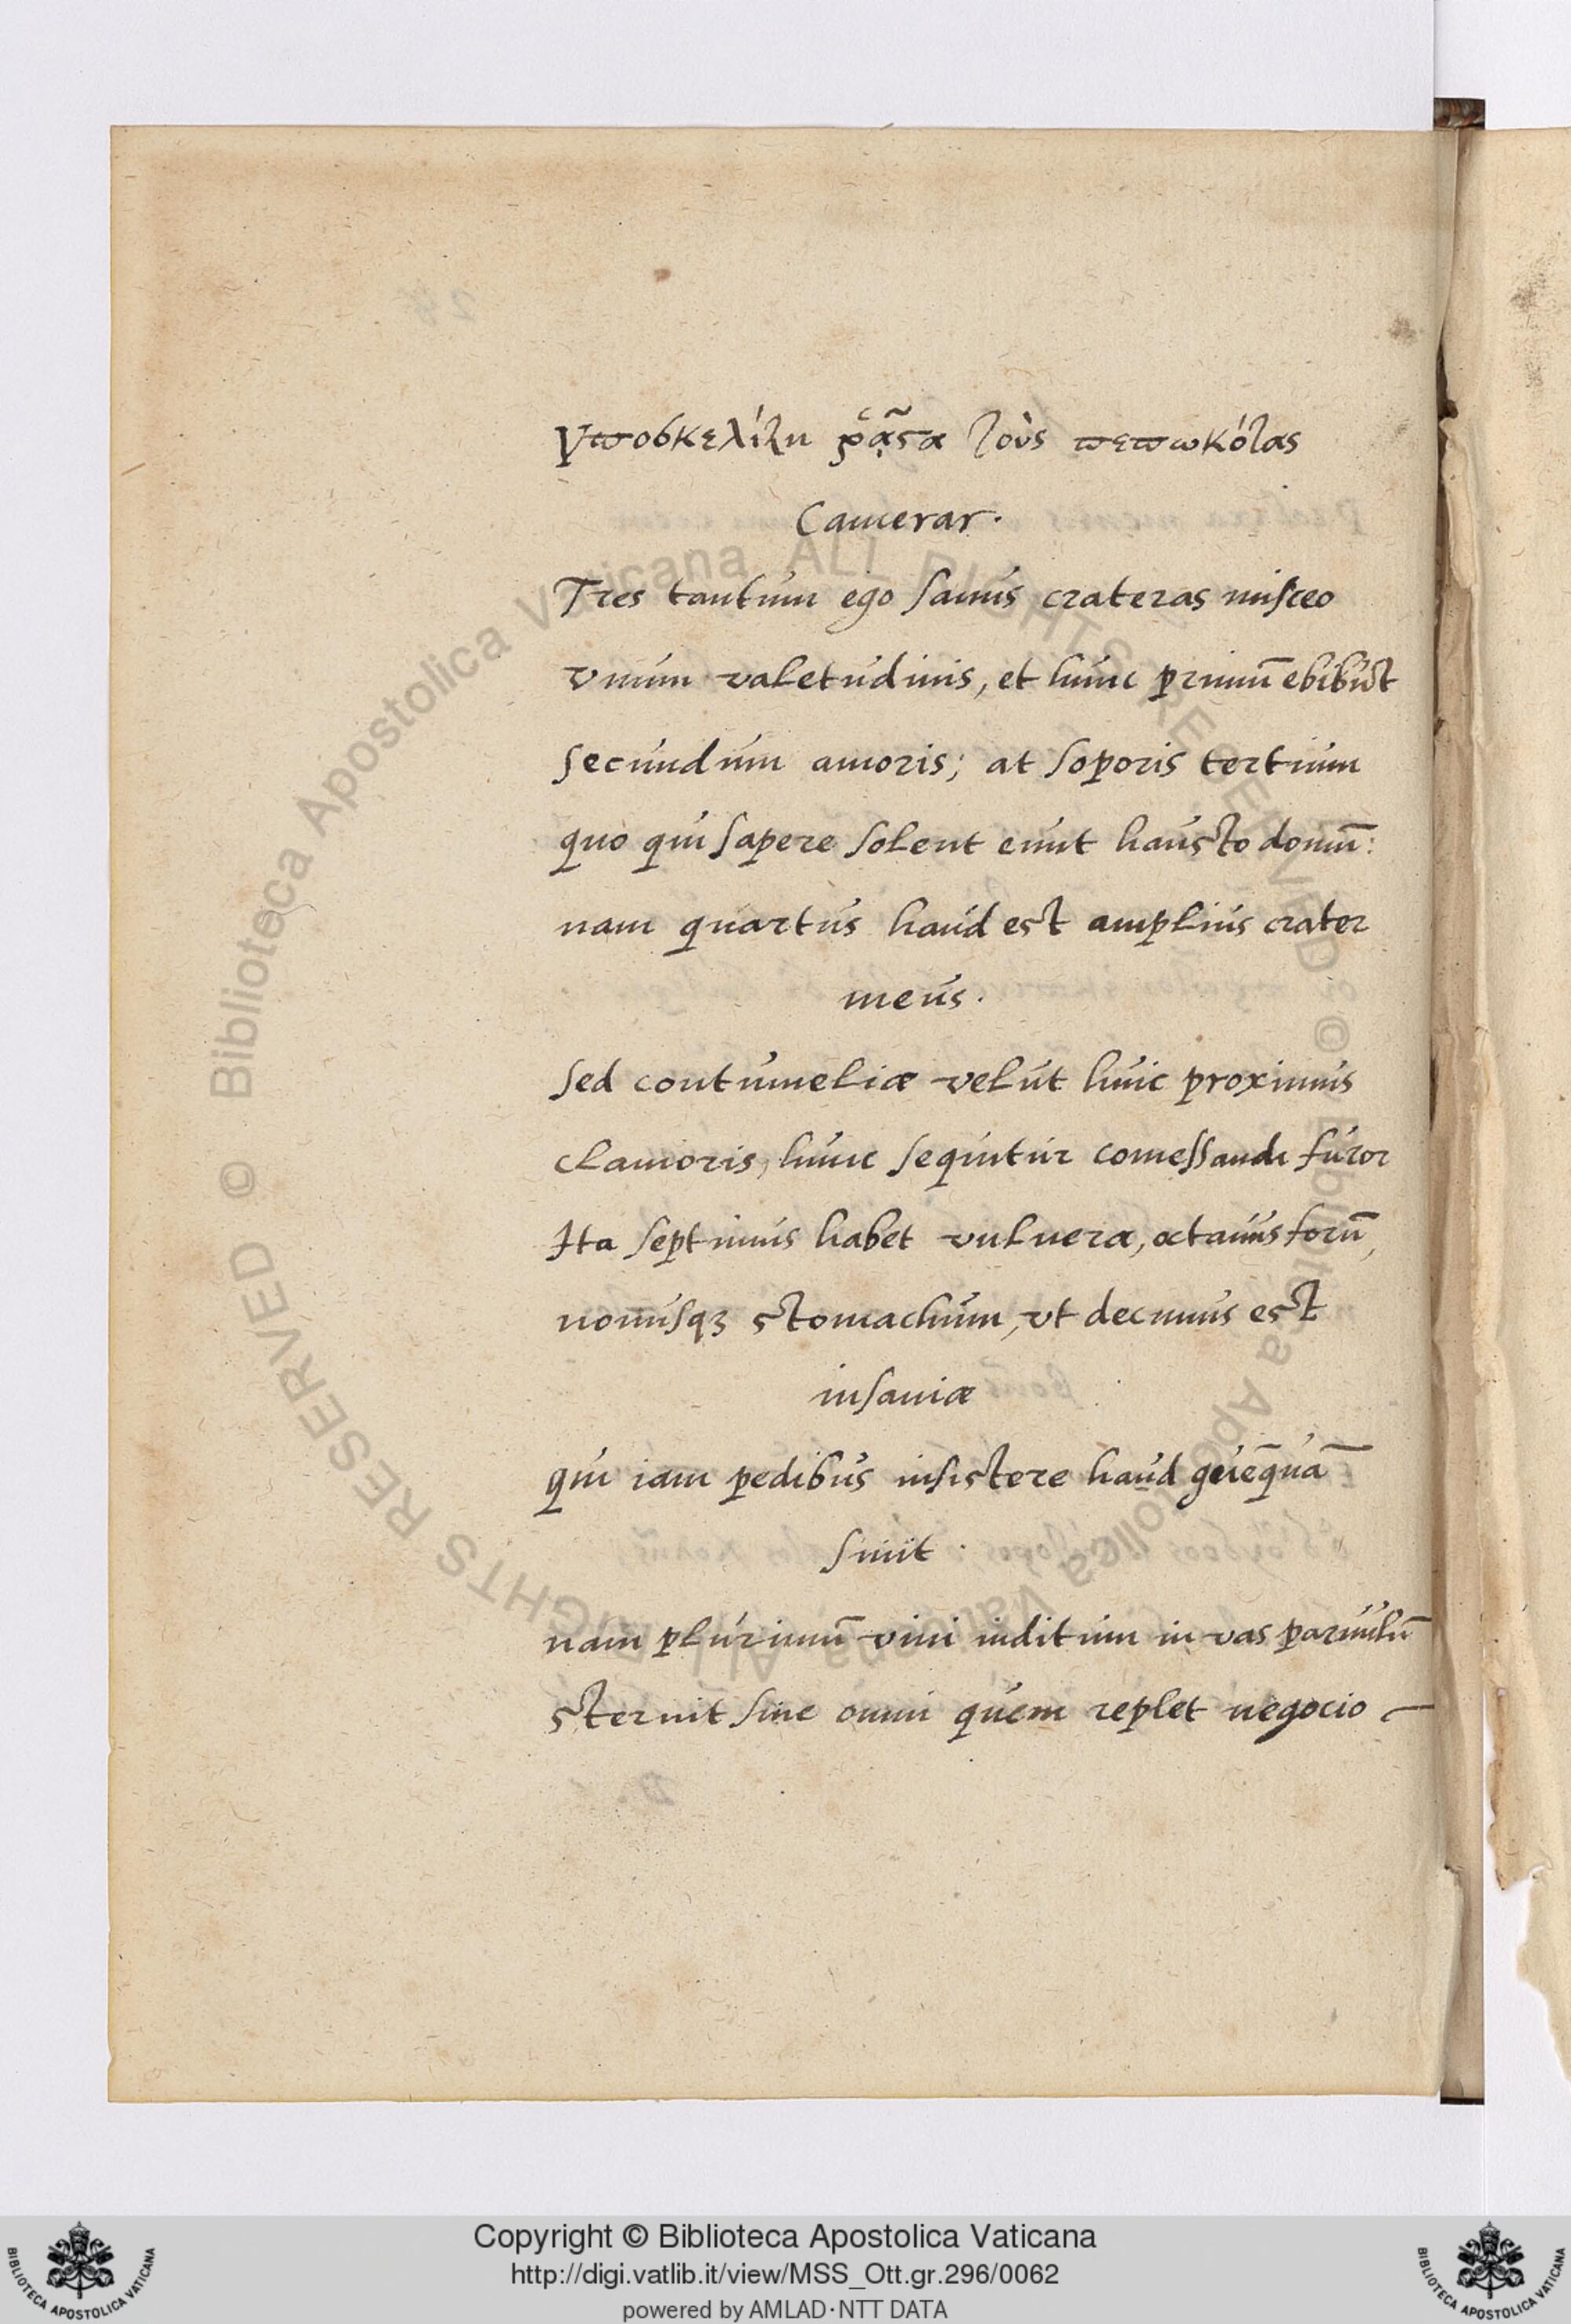 Ὑποσκελίζει ῥᾷστα τοὺς πεπωκότας
Camerar.
Tres tantum ego sanus crateras misceo
vnum valetudinis, et hunc primũ ebibũt
secundum amoris; at soporis tertium
quo qui sapere solent eunt hausto domũ:
nam quartus haud est amplius crater
meus.
Sed contumeliæ velut huic proximus
clamoris, hunc sequitur comessandi furor
Ita septimus habet vulnera, octauus forũ,
nonusqꝫ stomachum, vt decimus est
insaniæ
qui iam pedibus insistere haud quẽquã
sinit.
nam plurimũ vini inditum in vas paruulũ
sternit sine omni quem replet negocio
Copyright © Biblioteca Apostolica Vaticana
http://digi.vatlib.it/view/MSS_Ott.gr.296/0062
powered by AMLAD·NTT DATA
BIBLIOTECA APOSTOLICA VATICANA
BIBLIOTECA APOSTOLICA VATICANA
© Biblioteca Apostolica Vaticana ALL RIGHTS RESERVED © Biblioteca Apostolica Vaticana ALL RIGHTS RESERVED